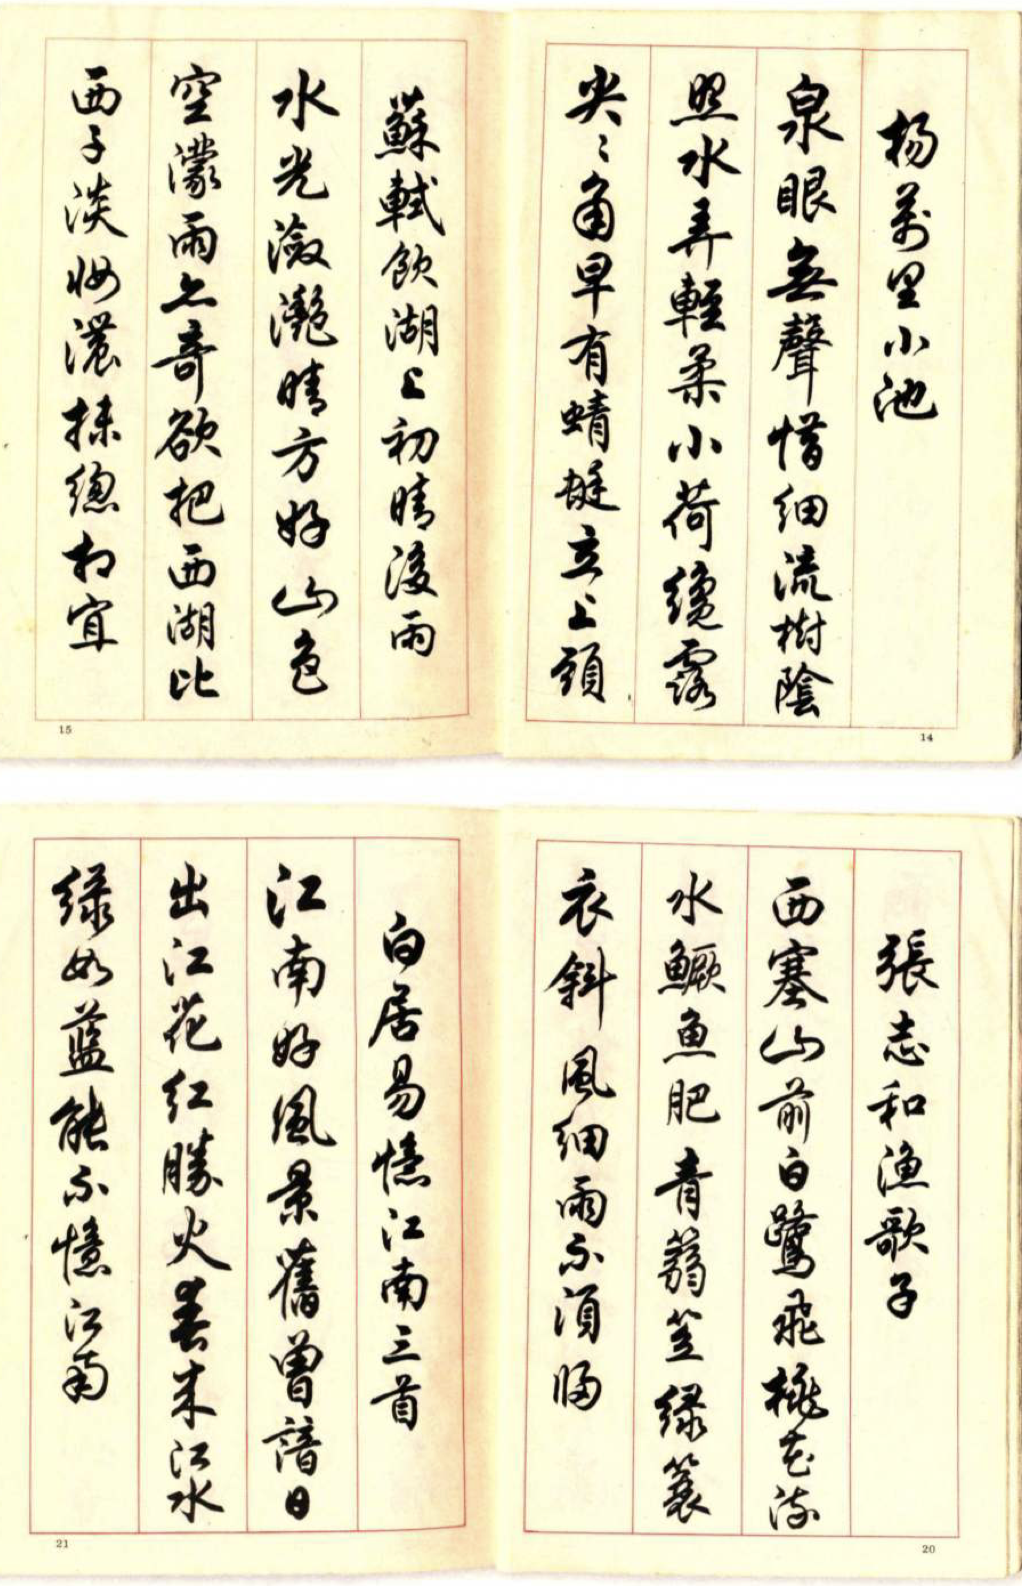 杨萬里小池
泉眼無聲惜細流樹陰
照水弄輕柔小荷纔露
尖〻角早有蜻蜓立上頭
14
蘇軾飲湖上初晴後雨
水光瀲灩晴方好山色
空濛雨亦奇欲把西湖比
西子淡妝濃抹總相宜
15
張志和漁歌子
西塞山前白鷺飛桃花流
水鱖魚肥青篛笠綠蓑
衣斜風細雨不須歸
20
白居易憶江南三首
江南好風景舊曾諳日
出江花紅勝火春來江水
綠如藍能不憶江南
21